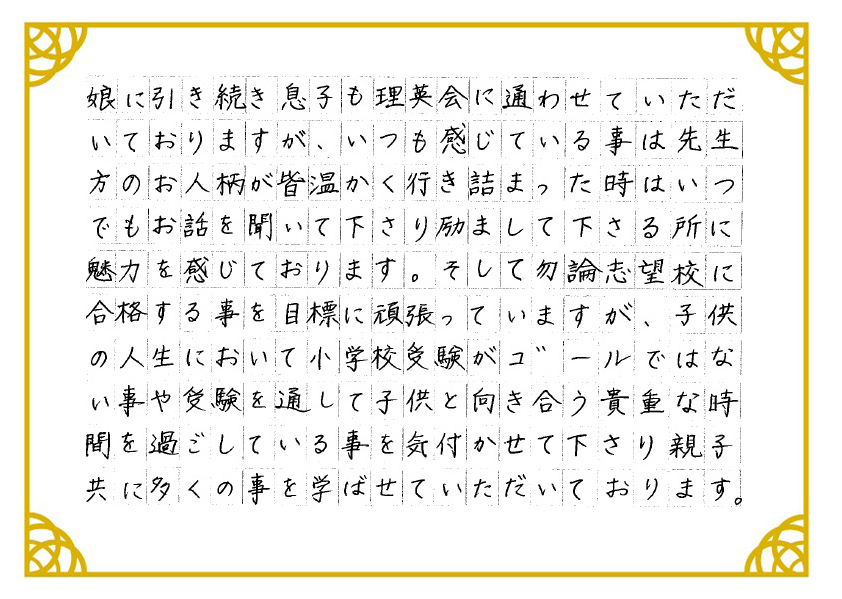 娘に引き続き息子も理英会に通わせていただ
いておりますが、いつも感じている事は先生
方のお人柄が皆温かく行き詰まった時はいつ
でもお話を聞いて下さり励まして下さる所に
魅力を感じております。そして勿論志望校に
合格する事を目標に頑張っていますが、子供
の人生において小学校受験がゴールではな
い事や受験を通して子供と向き合う貴重な時
間を過ごしている事を気付かせて下さり親子
共に多くの事を学ばせていただいております。